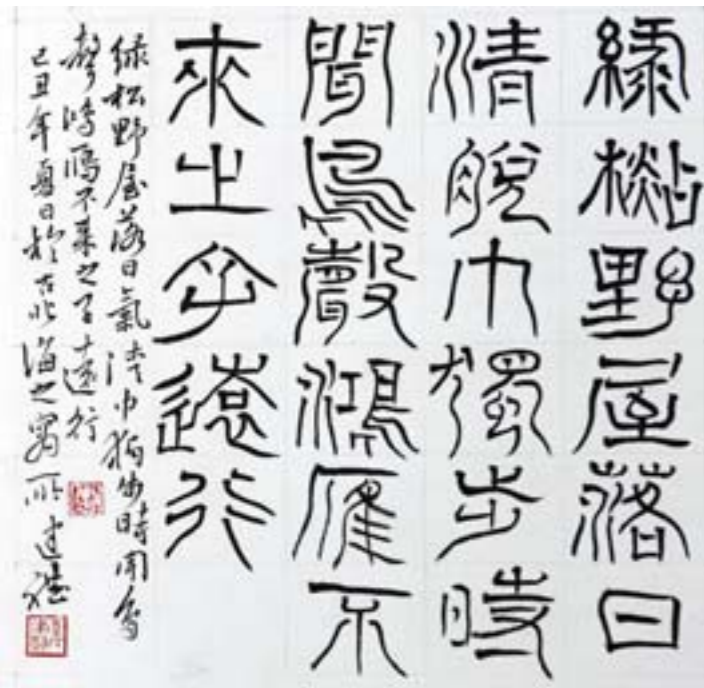 綠杉野屋落日
清脫巾獨步時
聞鳥聲鴻雁不
來之子遠行
綠杉野屋落日氣清巾獨步時聞鳥
聲鴻雁不來之子遠行
己丑年夏日於古北海之寓所建